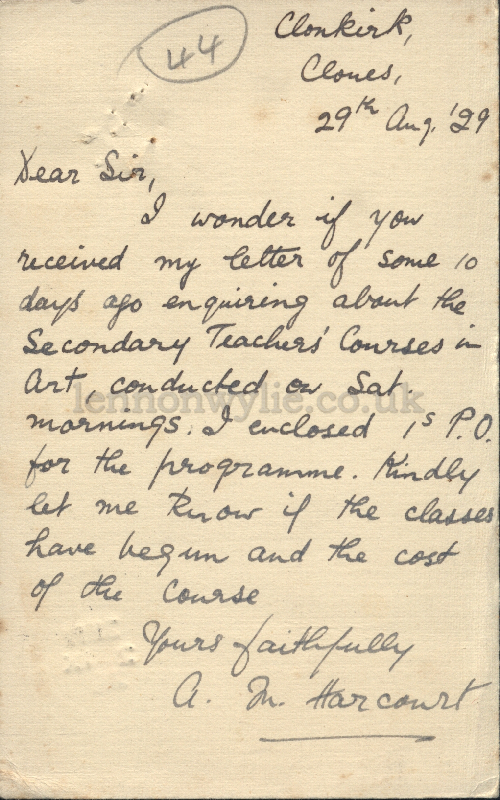 44
Clonkirk,
Clones,
29th Aug. '29
Dear Sir,
I wonder if you
received my letter of some 10
days ago enquiring about the
Secondary Teachers' Courses in
Art, conducted on Sat
lennonwylie.co.uk
mornings. I enclosed 1s P.O.
for the programme. Kindly
let me know if the classes
have begun and the cost
of the course
Yours faithfully
A. M. Harcourt